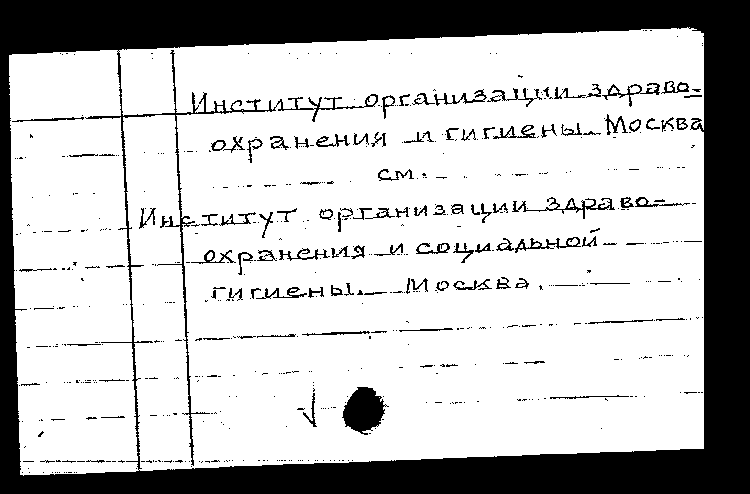 Институт организации здраво-
охранения и гигиены. Москва
см.
Институт организации здраво-
охранения и социальной
гигиены. Москва.